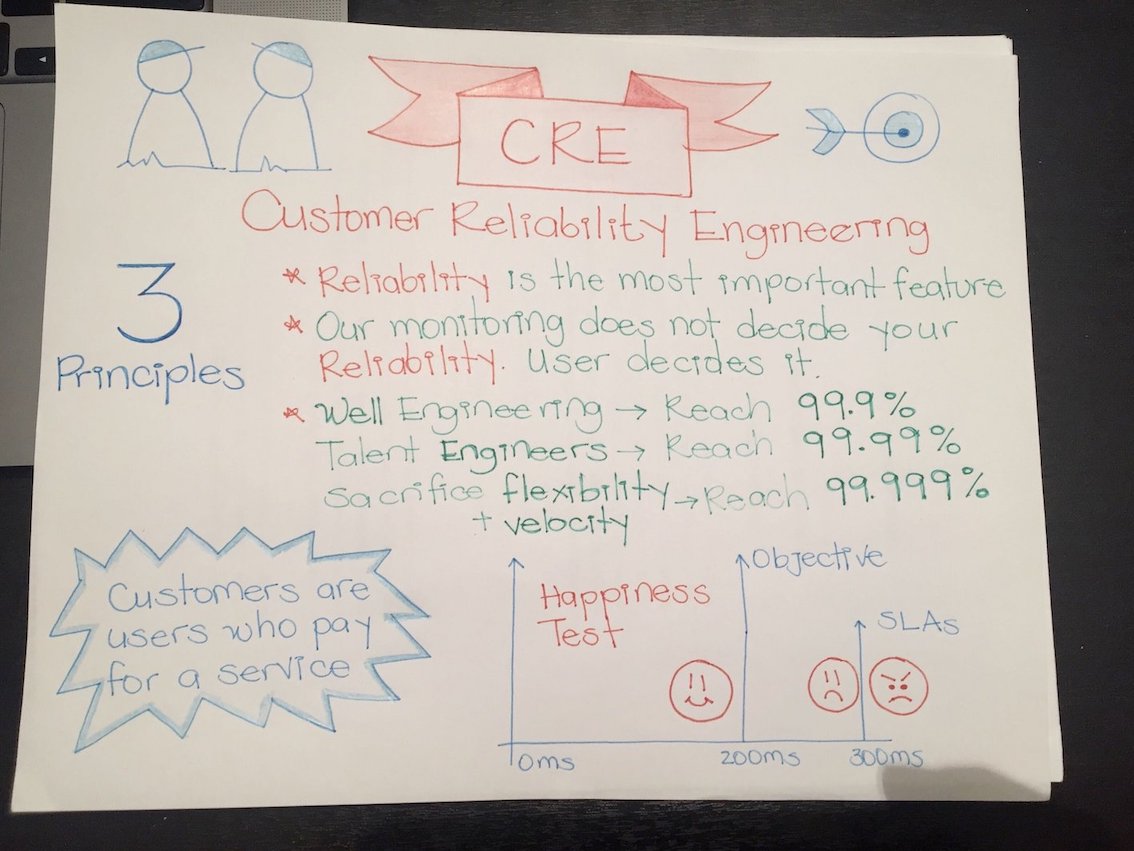 CRE
Customer Reliability Engineering
3
Principles
* Reliability is the most important feature
* Our monitoring does not decide your
Reliability. User decides it.
* Well Engineering → Reach 99.9%
Talent Engineers → Reach 99.99%
Sacrifice flexibility → Reach 99.999%
+ velocity
Customers are
users who pay
for a service
Happiness
Test
Objective
SLAs
0ms
200ms
300ms